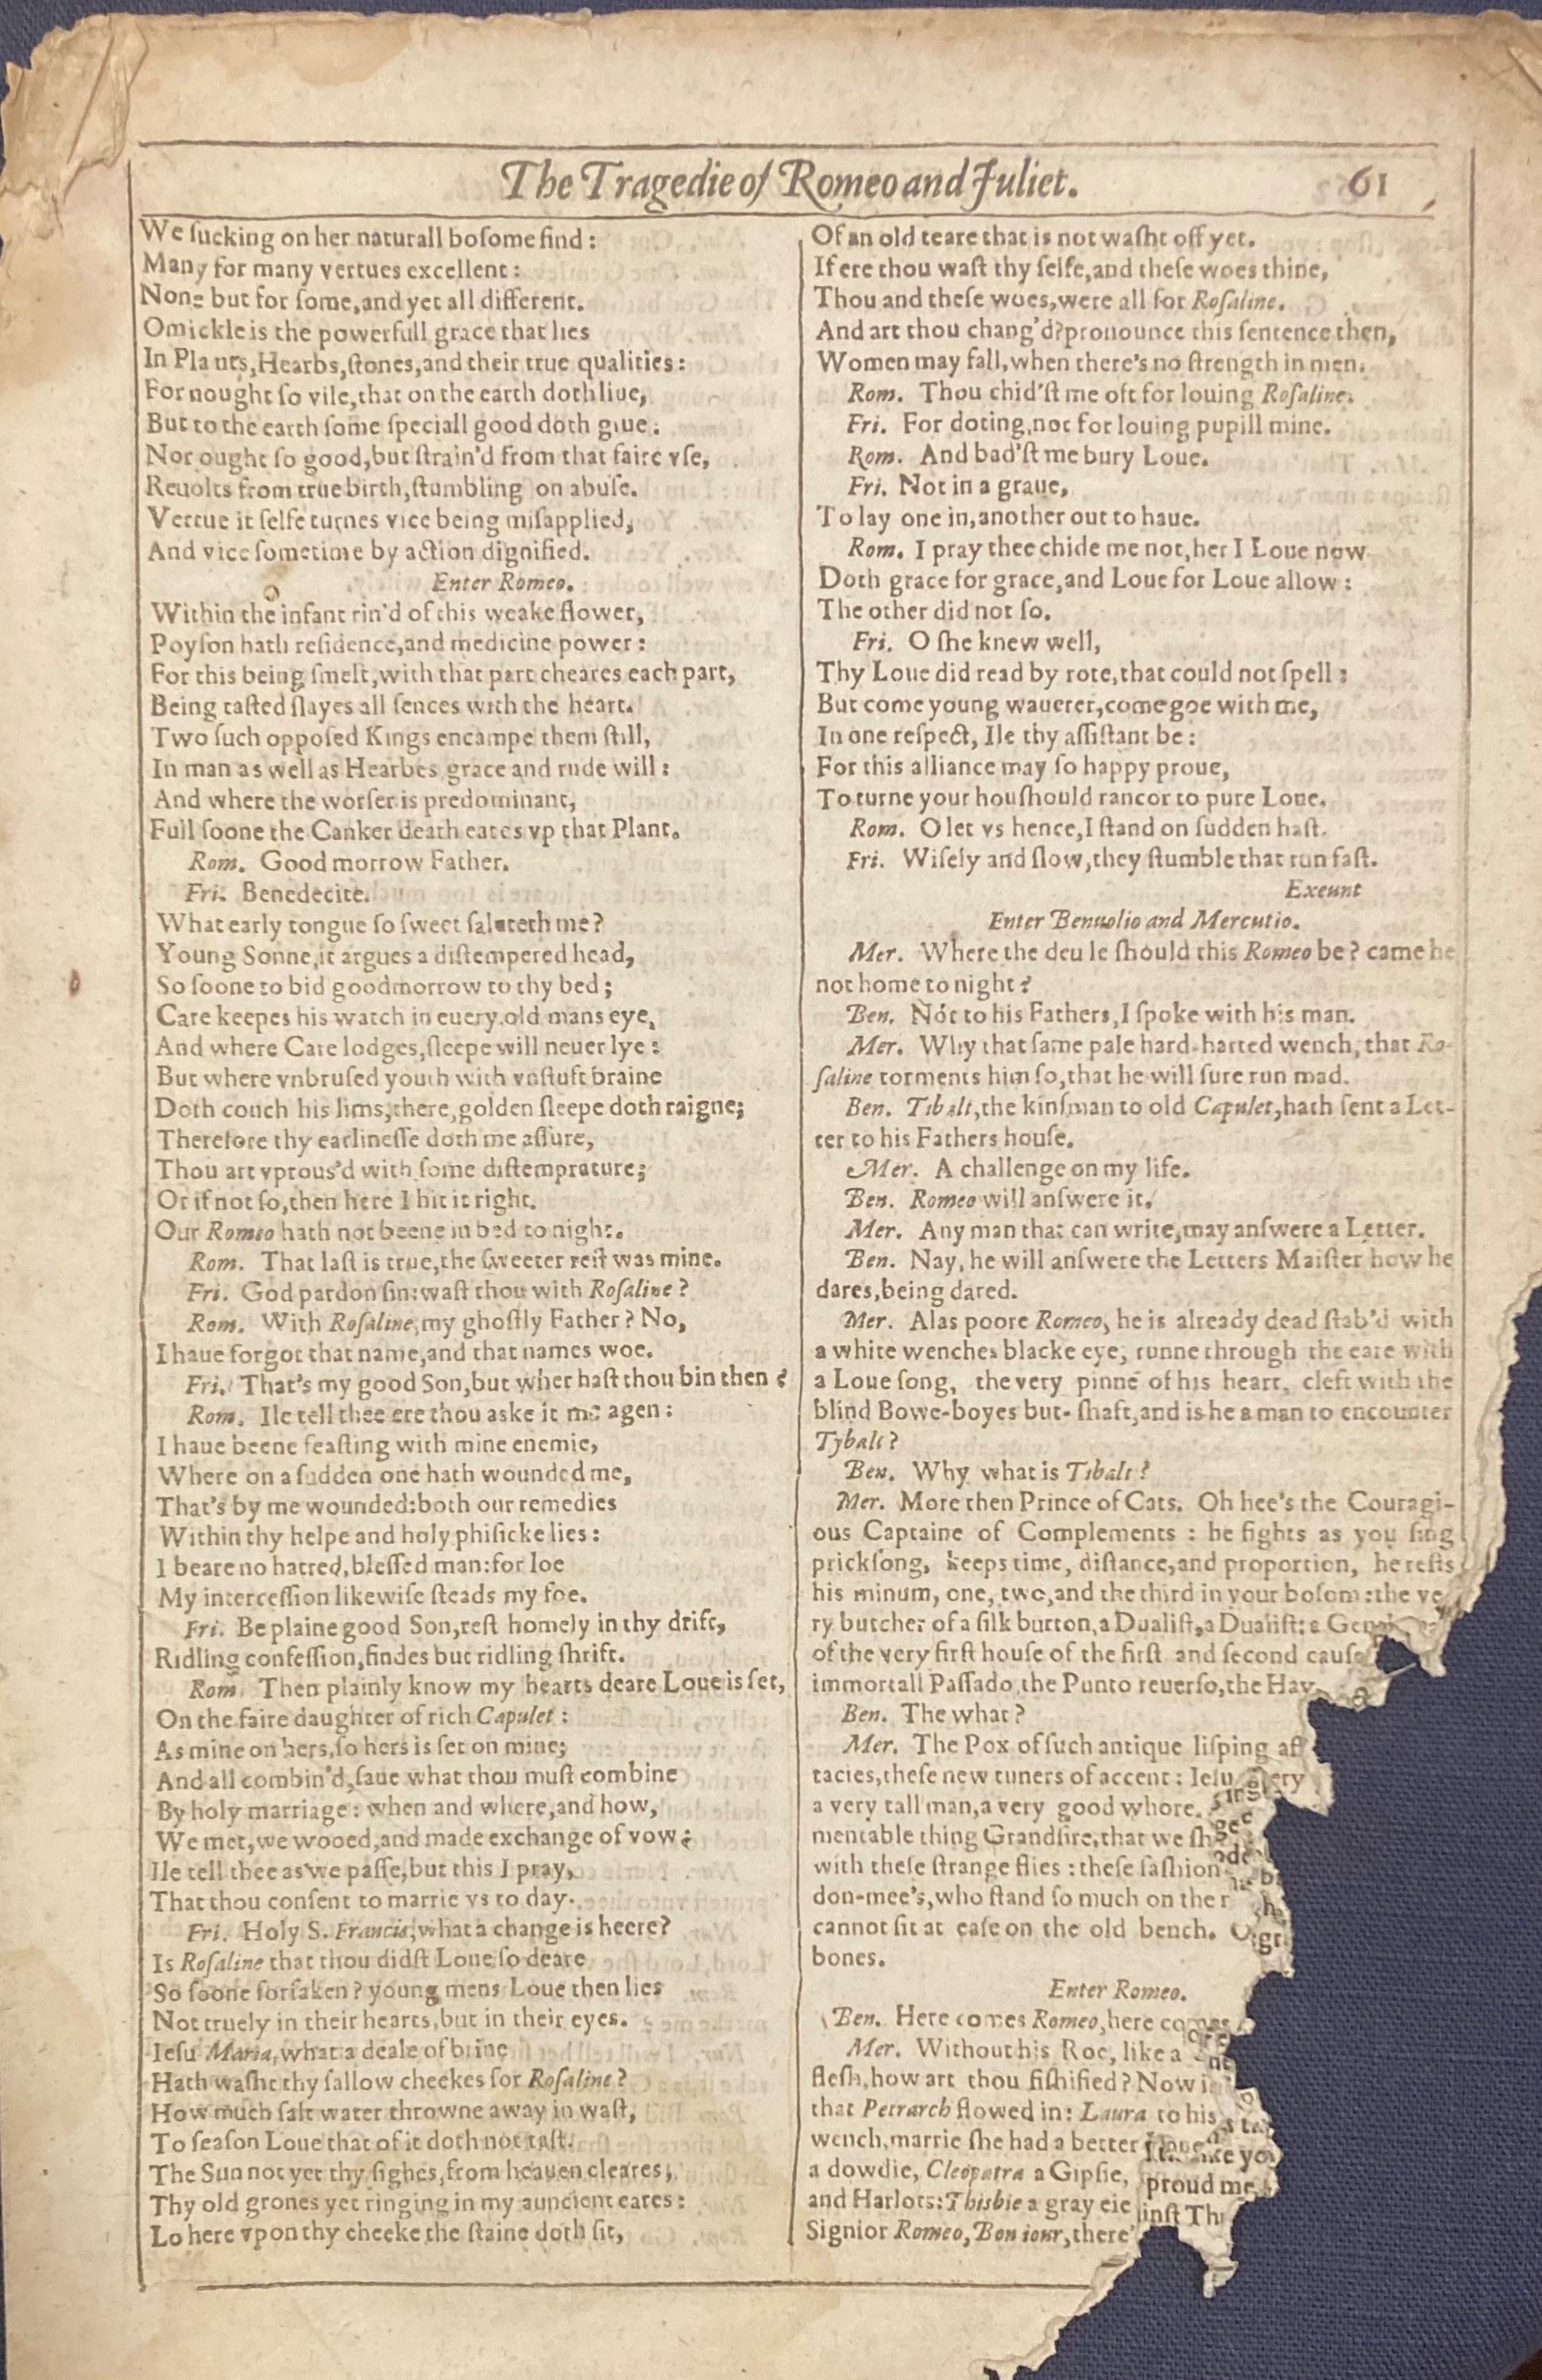 The Tragedie of Romeo and Juliet. 61
We ſucking on her naturall boſome find:
Many for many vertues excellent:
None but for ſome,and yet all different.
Omickle is the powerfull grace that lies
In Plants,Hearbs,ſtones,and their true qualities:
For nought ſo vile,that on the earth doth liue,
But to the earth ſome ſpeciall good doth giue.
Nor ought ſo good,but ſtrain'd from that faire vſe,
Reuolts from true birth,ſtumbling on abuſe.
Vertue it ſelfe turnes vice being miſapplied,
And vice ſometime by action dignified.
Enter Romeo.
Within the infant rin'd of this weake flower,
Poyſon hath reſidence,and medicine power:
For this being ſmelt,with that part cheares each part,
Being taſted ſlayes all ſences with the heart.
Two ſuch oppoſed Kings encampe them ſtill,
In man as well as Hearbes grace and rude will:
And where the worſer is predominant,
Full ſoone the Canker death eates vp that Plant.
Rom. Good morrow Father.
Fri. Benedecite.
What early tongue ſo ſweet ſaluteth me?
Young Sonne,it argues a diſtempered head,
So ſoone to bid goodmorrow to thy bed;
Care keepes his watch in euery old mans eye,
And where Care lodges,ſleepe will neuer lye:
But where vnbruſed youth with vnſtuft braine
Doth couch his lims,there,golden ſleepe doth raigne;
Therefore thy earlineſſe doth me aſſure,
Thou art vprous'd with ſome diſtemprature;
Or if not ſo,then here I hit it right.
Our Romeo hath not beene in bed to night.
Rom. That laſt is true,the ſweeter reſt was mine.
Fri. God pardon ſin:waſt thou with Roſaline?
Rom. With Roſaline,my ghoſtly Father? No,
I haue forgot that name,and that names woe.
Fri. That's my good Son,but wher haſt thou bin then?
Rom. Ile tell thee ere thou aske it me agen:
I haue beene feaſting with mine enemie,
Where on a ſudden one hath wounded me,
That's by me wounded:both our remedies
Within thy helpe and holy phiſicke lies:
I beare no hatred,bleſſed man:for loe
My interceſſion likewiſe ſteads my foe.
Fri. Be plaine good Son,reſt homely in thy drift,
Ridling confeſſion,findes but ridling ſhrift.
Rom. Then plainly know my hearts deare Loue is ſet,
On the faire daughter of rich Capulet:
As mine on hers,ſo hers is ſet on mine;
And all combin'd,ſaue what thou muſt combine
By holy marriage: when and where,and how,
We met,we wooed,and made exchange of vow:
Ile tell thee as we paſſe,but this I pray,
That thou conſent to marrie vs to day.
Fri. Holy S. Francis,what a change is heere?
Is Roſaline that thou didſt Loue ſo deare
So ſoone forſaken? young mens Loue then lies
Not truely in their hearts,but in their eyes.
Ieſu Maria,what a deale of brine
Hath waſht thy ſallow cheekes for Roſaline?
How much ſalt water throwne away in waſt,
To ſeaſon Loue that of it doth not taſt.
The Sun not yet thy ſighes,from heauen cleares,
Thy old grones yet ringing in my auncient eares:
Lo here vpon thy cheeke the ſtaine doth ſit,
Of an old teare that is not waſht off yet.
If ere thou waſt thy ſelfe,and theſe woes thine,
Thou and theſe woes,were all for Roſaline.
And art thou chang'd?pronounce this ſentence then,
Women may fall,when there's no ſtrength in men.
Rom. Thou chid'ſt me oft for louing Roſaline.
Fri. For doting,not for louing pupill mine.
Rom. And bad'ſt me bury Loue.
Fri. Not in a graue,
To lay one in,another out to haue.
Rom. I pray thee chide me not,her I Loue now
Doth grace for grace,and Loue for Loue allow:
The other did not ſo.
Fri. O ſhe knew well,
Thy Loue did read by rote,that could not ſpell:
But come young wauerer,come goe with me,
In one reſpect, Ile thy aſſiſtant be:
For this alliance may ſo happy proue,
To turne your houſhould rancor to pure Loue.
Rom. O let vs hence,I ſtand on ſudden haſt.
Fri. Wiſely and ſlow,they ſtumble that run faſt.
Exeunt
Enter Benuolio and Mercutio.
Mer. Where the deu le ſhould this Romeo be? came he
not home to night?
Ben. Not to his Fathers,I ſpoke with his man.
Mer. Why that ſame pale hard-harted wench, that Ro-
ſaline torments him ſo,that he will ſure run mad.
Ben. Tibalt,the kinſman to old Capulet,hath ſent a Let-
ter to his Fathers houſe.
Mer. A challenge on my life.
Ben. Romeo will anſwere it.
Mer. Any man that can write,may anſwere a Letter.
Ben. Nay, he will anſwere the Letters Maiſter how he
dares,being dared.
Mer. Alas poore Romeo, he is already dead ſtab'd with
a white wenches blacke eye, runne through the eare with
a Loue ſong, the very pinne of his heart, cleft with the
blind Bowe-boyes but-ſhaft,and is he a man to encounter
Tybalt?
Ben. Why what is Tibalt?
Mer. More then Prince of Cats. Oh hee's the Couragi-
ous Captaine of Complements: he fights as you ſing
prickſong, keeps time, diſtance,and proportion, he reſts
his minum, one, two,and the third in your boſom:the ve
ry butcher of a ſilk button,a Dualiſt,a Dualiſt:a
of the very firſt houſe of the firſt and ſecond cauſe
immortall Paſſado,the Punto reuerſo,the Hay
Ben. The what?
Mer. The Pox of ſuch antique liſping af
tacies,theſe new tuners of accent: Ieſu
a very tall man,a very good whore.
mentable thing Grandſire,that we ſh
with theſe ſtrange flies: theſe faſhion
don-mee's,who ſtand ſo much on the
cannot ſit at eaſe on the old bench. O
bones.
Enter Romeo.
Ben. Here comes Romeo,here comes
Mer. Without his Roe, like a
fleſh,how art thou fiſhified? Now
that Petrarch flowed in: Laura to his
wench,marrie ſhe had a better
a dowdie, Cleopatra a Gipſie, proud me
and Harlots:Thisbie a gray eie
Signior Romeo, Bon iour,there'